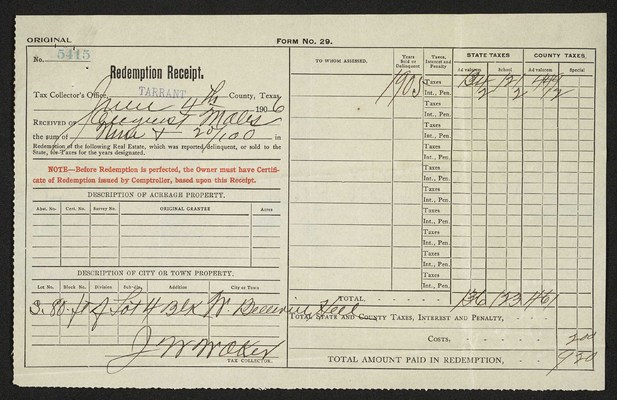 ORIGINAL
FORM No. 29.
No. 5415
Redemption Receipt.
Tax Collector's Office, TARRANT County, Texas,
June 4th 1906
RECEIVED OF August Moles
the sum of Nine & 20/100 in
Redemption of the following Real Estate, which was reported delinquent, or sold to the
State, for Taxes for the years designated.
NOTE—Before Redemption is perfected, the Owner must have Certifi-
cate of Redemption issued by Comptroller, based upon this Receipt.
DESCRIPTION OF ACREAGE PROPERTY.
Abst. No. Cert. No. Survey No. ORIGINAL GRANTEE Acres
DESCRIPTION OF CITY OR TOWN PROPERTY.
Lot No. Block No. Division Sub-Div. Addition City or Town
S. 80 ft of Lot 4 Blk W.
TAX COLLECTOR.
TO WHOM ASSESSED. Years Sold or Delinquent Taxes, Interest and Penalty STATE TAXES COUNTY TAXES,
Ad valorem School Ad valorem Special
1905 Taxes 134 121 449
Int., Pen. 2 2 12
Taxes
Int., Pen.
Taxes
Int., Pen.
Taxes
Int., Pen.
Taxes
Int., Pen.
Taxes
Int., Pen.
TOTAL, 136 123 461
TOTAL STATE AND COUNTY TAXES, INTEREST AND PENALTY,
COSTS, 200
TOTAL AMOUNT PAID IN REDEMPTION, 920